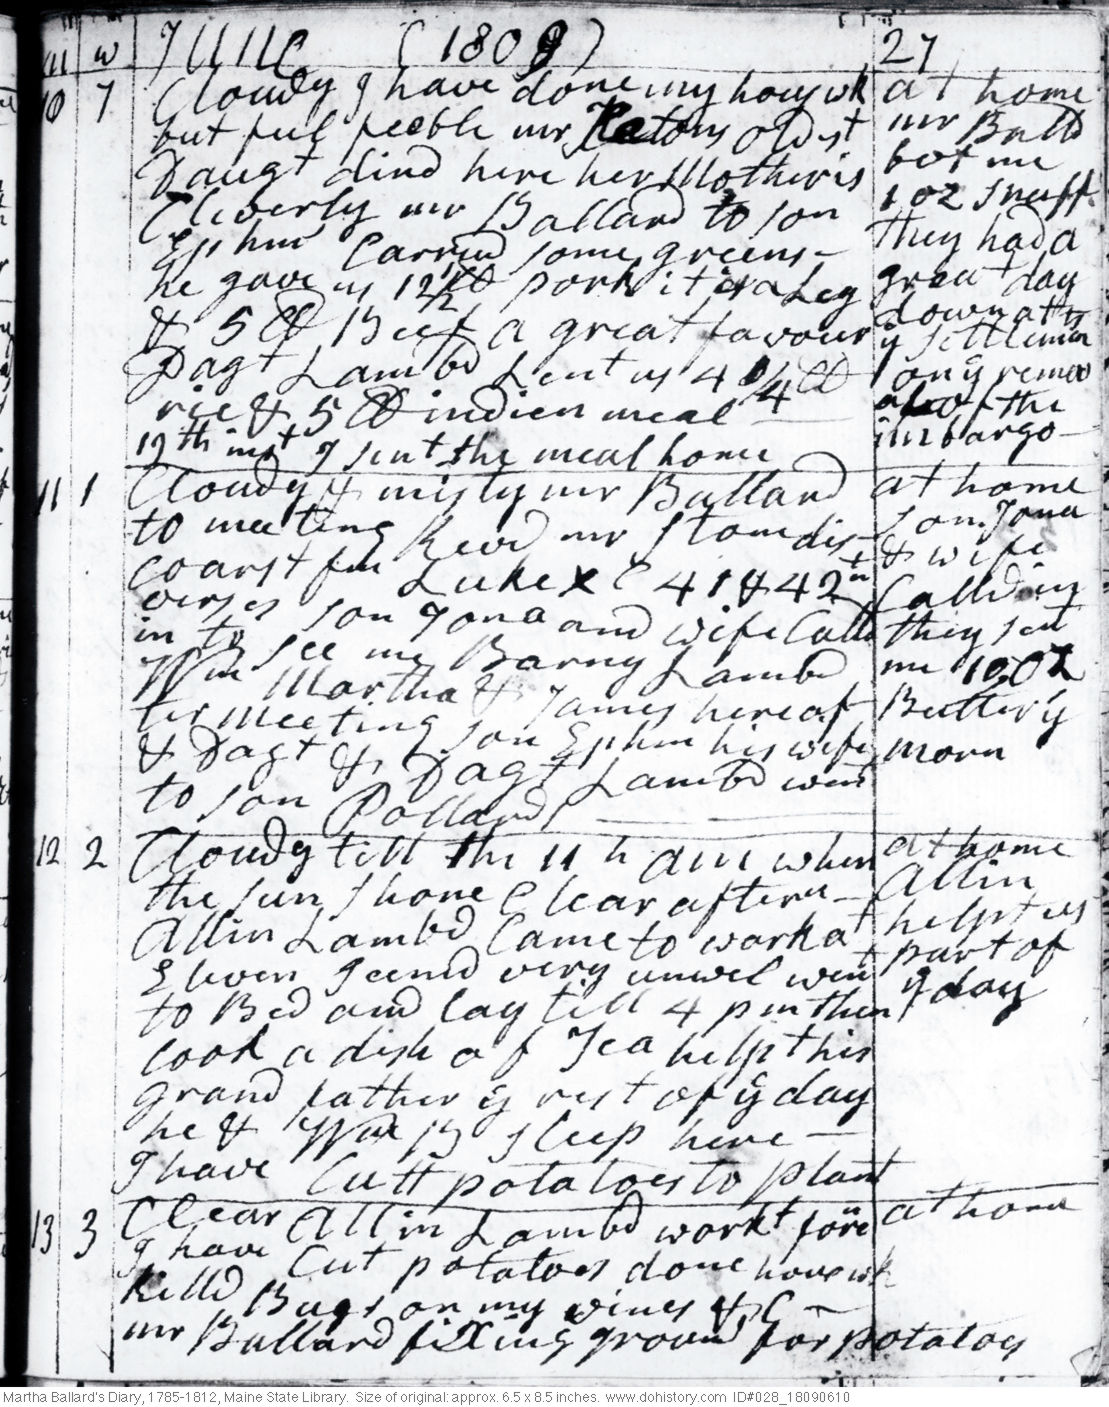 m w June (1809) 27
10 7 Cloudy I have done my houswk
but feel feeble mr Peatons oldest
Daugt dind here her Mother is
Cleverly mr Ballard to son
Ephm Carried some greens -
he gave us 12 1/2 lb pork it is a Leg
& 5 lb Beef a great favour
Dagt Lambd Lent us 4 1/4 lb
rice & 5 lb indien meal
19th inst I sent the meal home
at home
mr Balld
bot me
1 oz snuff
they had a
great day
down at ye
settlemen
on ye remov
al of the
imbargo
11 1 Cloudy & misty mr Ballard
to meeting Revd mr Stone dis
coarst fm Luke X C 41 & 42nd
verses son Jona and wife Calld
in to see me Barny Lambd
Wm Martha & James here af
ter meeting son Ephm his wife
& Dagt & Dagt Lambd went
to son Pollards
at home
son Jona
& wife
Calld in
they sent
me 10 oz
Butter ye
morn
12 2 Cloudy till the 11 h am when
the sun shone Clear aftern -
Allin Lambd Came to work at
Eleven seemd very unwel went
to Bed and lay till 4 pm then
took a dish of Tea helpt his
grand father ye rest of ye day
he & Wm B sleep here -
I have Cutt potatoes to plant
at home
Allin
helpt us
part of
ye day
13 3 Clear Allin Lambd workt fore
I have Cut potatoes done housewk
killd Bugs on my vines & C -
mr Ballard fixing groun for potatoes
at home
Martha Ballard's Diary, 1785-1812, Maine State Library. Size of original: approx. 6.5 x 8.5 inches. www.dohistory.com ID#028_18090610